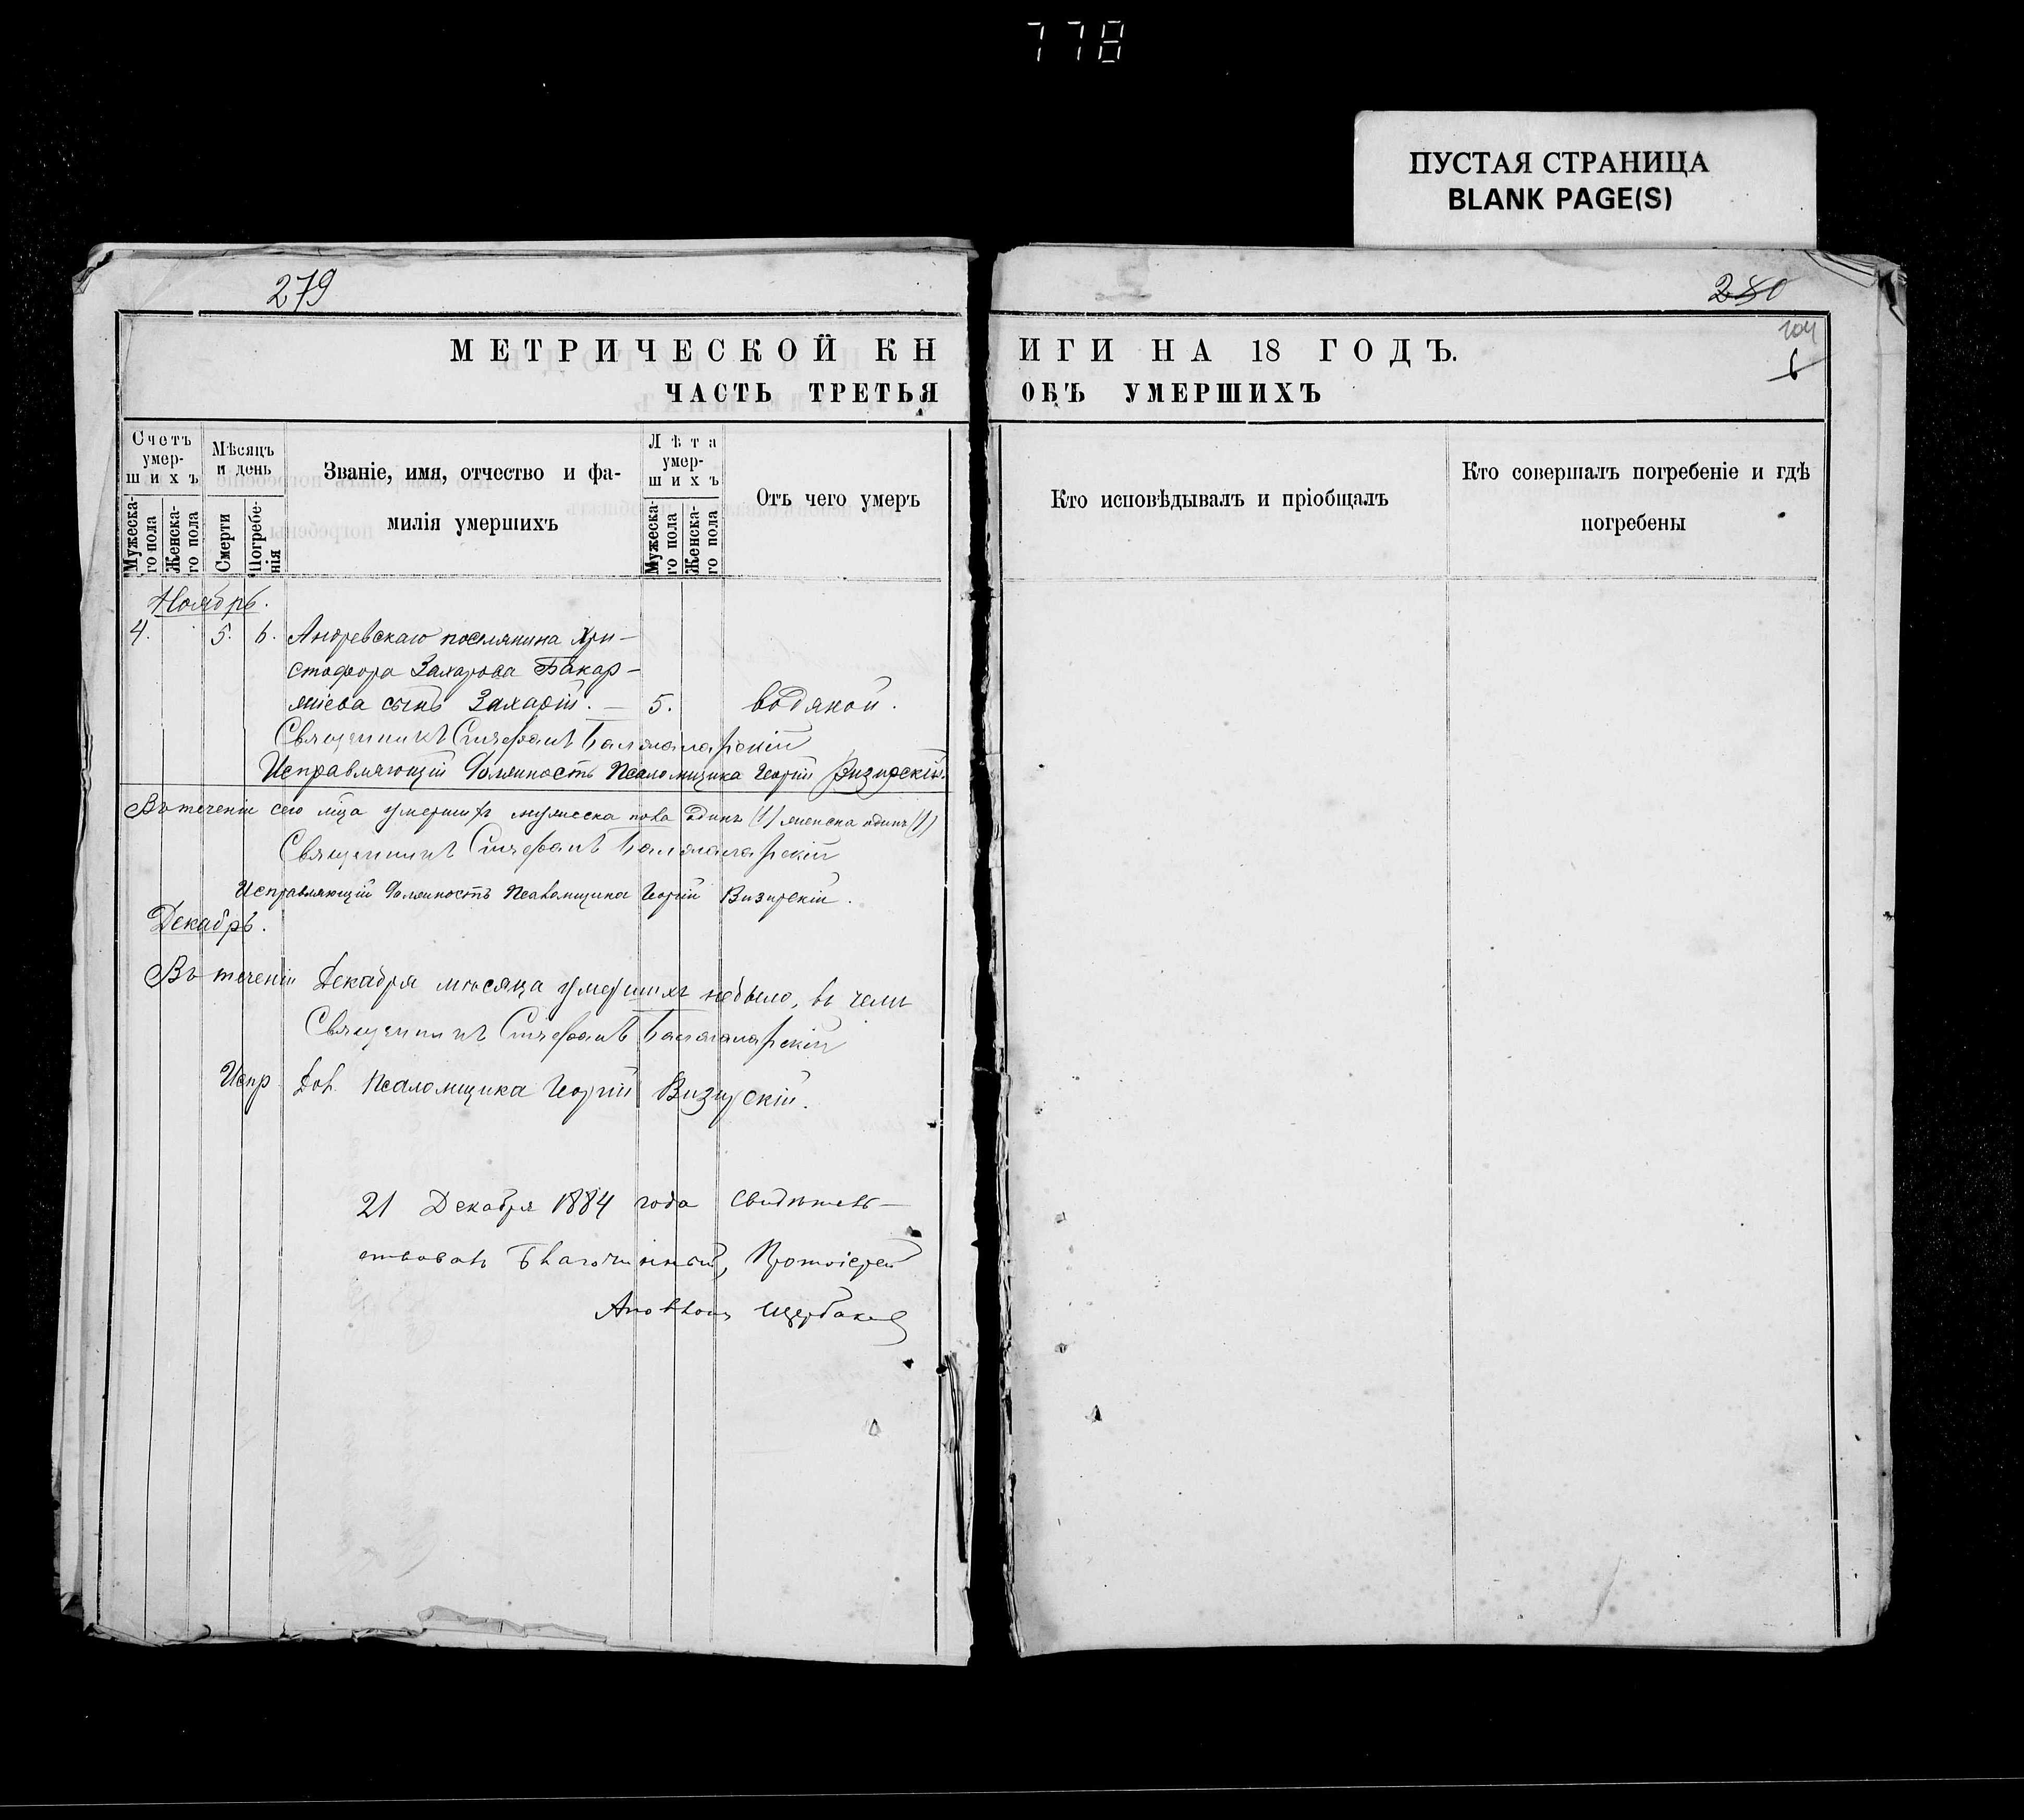 778
ПУСТАЯ СТРАНИЦА
BLANK PAGE(S)
279
МЕТРИЧЕСКОЙ КН
ЧАСТЬ ТРЕТЬЯ
Счетъ умер-
шихъ
Мужеска-
го пола
Женска-
го пола
Мѣсяцъ
и день
Смерти
Погребе-
нія
Званіе, имя, отчество и фа-
милія умершихъ
Лѣта
умер-
шихъ
Мужеска-
го пола
Женска-
го пола
Отъ чего умеръ
Ноябрь.
4. 5. 6. Андревскаго поселянина Хри-
стофора Захарова Бакар-
жіева сынъ Захарій. — 5. водяной.
Священникъ Стефанъ
Исправляющій должность Псаломщика Георгій Визирскій.
Въ теченіи сего мца умершихъ мужеска пола одинъ (1) женска одинъ (1)
Священникъ Стефанъ
Исправляющій должность Псаломщика Георгій Визирскій.
Декабрь.
Въ теченіи Декабря мѣсяца умершихъ небыло, въ чемъ
Священникъ Стефанъ
Испр. Дол. Псаломщика Георгій Визирскій.
21 Декабря 1884 года свидѣтель-
ствовалъ Благочинный, Протоіерей
Щербаковъ
280
104
6
ИГИ НА 18 ГОДЪ.
ОБЪ УМЕРШИХЪ
Кто исповѣдывалъ и пріобщалъ
Кто совершалъ погребеніе и гдѣ
погребены